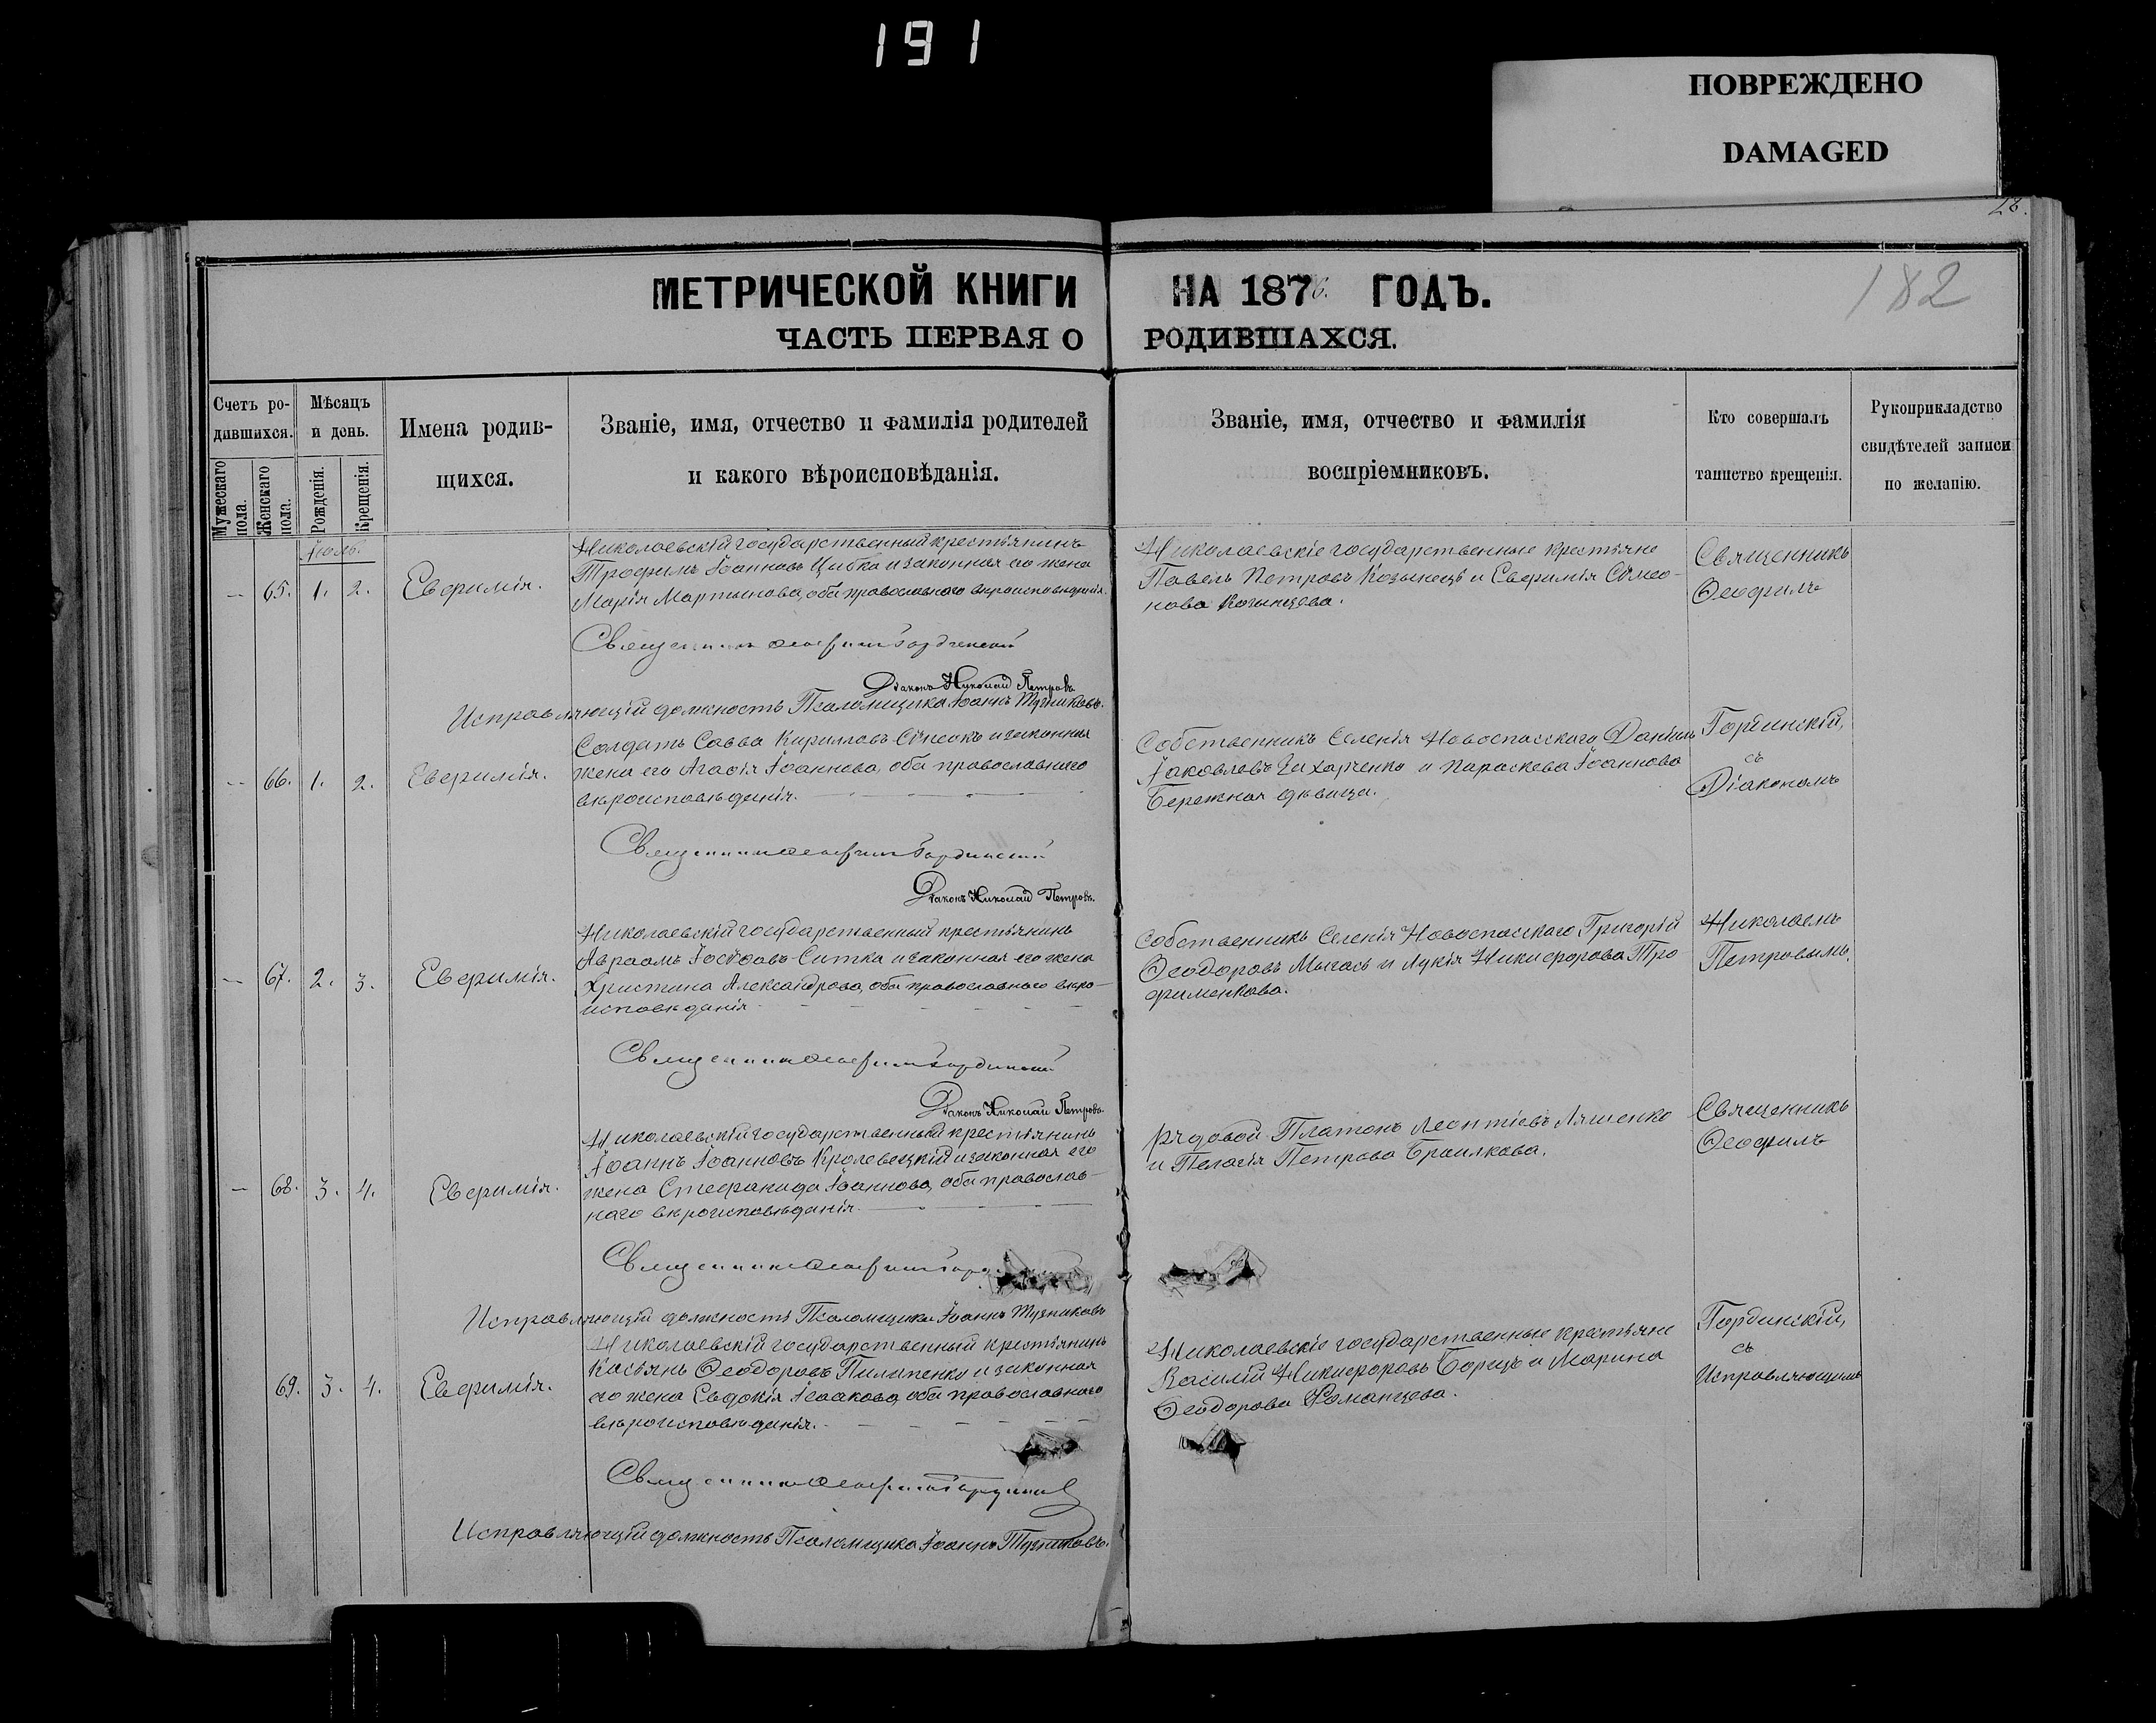 191
ПОВРЕЖДЕНО
DAMAGED
182
МЕТРИЧЕСКОЙ КНИГИ НА 1876. ГОДЪ.
ЧАСТЬ ПЕРВАЯ О РОДИВШАХСЯ.
Счетъ ро-
дившихся.
Мужескаго пола.
Женскаго пола.
Мѣсяцъ
и день.
Рожденія.
Крещенія.
Имена родив-
щихся.
Званіе, имя, отчество и фамилія родителей
и какого вѣроисповѣданія.
Званіе, имя, отчество и фамилія
воспріемниковъ.
Кто совершалъ
таинство крещенія.
Рукоприкладство
свидѣтелей записи
по желанію.
Іюль.
— 65. 1. 2. Евфимія.
Николаевскій государственный крестьянинъ
Трофимъ Іоанновъ Цибка и законная его жена
Марія Мартынова, оба православнаго вѣроисповѣданія.
Николаевскіе государственные крестьяне
Павелъ Петровъ Козынецъ и Евфимія Сѵмео-
нова Козынцева.
Священникъ
Ѳеофилъ
Священникъ Ѳеофилъ Гординскій
Діаконъ Николай Петровъ
Исправляющій должность Псаломщика Іоаннъ
— 66. 1. 2. Евфимія.
Солдатъ Савва Кирилловъ и законная
жена его Агафія Іоаннова, оба православнаго
вѣроисповѣданія.
Собственникъ Селенія Новоспасскаго Даніилъ
Іаковлевъ Захарченко и Параскева Іоаннова
Бережная дѣвица.
Гординскій,
съ
Діакономъ
Священникъ Ѳеофилъ Гординскій
Діаконъ Николай Петровъ.
— 67. 2. 3. Евфимія.
Николаевскій государственный крестьянинъ
Авраамъ Іосифовъ Ситка и законная его жена
Христина Александрова, оба православнаго вѣро-
исповѣданія
Собственникъ Селенія Новоспасскаго Григорій
Ѳеодоровъ и Лукія Никифорова Тро-
фименкова.
Николаемъ
Петровымъ.
Священникъ Ѳеофилъ Гординскій
Діаконъ Николай Петровъ.
— 68. 3. 4. Евфимія.
Николаевскій государственный крестьянинъ
Іоаннъ Іоанновъ Кролевецкій и законная его
жена Стефанида Іоаннова, оба православ-
наго вѣроисповѣданія.
Рядовой Платонъ Леонтіевъ Ляшенко
и Пелагія Петрова Браилкова.
Священникъ
Ѳеофилъ
Священникъ Ѳеофилъ
Исправляющій должность Псаломщика Іоаннъ
69. 3. 4. Евфимія.
Николаевскій государственный крестьянинъ
Касьянъ Ѳеодоровъ Пилипенко и законная
его жена Евдокія Исаакова, оба православнаго
вѣроисповѣданія.
Николаевскіе государственные крестьяне
Василій Никифоровъ Борецъ и Марина
Ѳеодорова Романцева.
Гординскій,
съ
Исправляющимъ
Священникъ Ѳеофилъ Гординскій
Исправляющій должность Псаломщика Іоаннъ